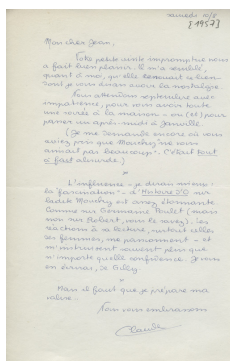 samedi 10/8
[1957]
Mon cher Jean,
Votre petite visite impromptue nous
a fait bien plaisir. Il m'a semblé,
quant à moi, qu'elle
dont je vous disais avoir la nostalgie.
Nous attendons septembre avec
impatience, pour vous avoir toute
une soirée à la maison - et (et) pour
passer un après-midi à Janville.
(Je me demande encore où vous
aviez pris que Maudry ne vous
aimait pas beaucoup. C'était tout
à fait absurde.)
*
L'influence - je dirais mieux :
la "fascination" - d'Histoire d'O sur
ladite Maudry est assez étonnante.
Comme sur Germaine Poulet (mais
non sur Robert, moi le savez). Les
réactions à sa lecture, surtout celles
des femmes, me passionnent - et
m'instruisent souvent plus que
n'importe quelle conférence. Je vous
en dirai, de Gilly.
*
Mais il faut que je prépare ma
valise.
Nous vous embrassons
Claude